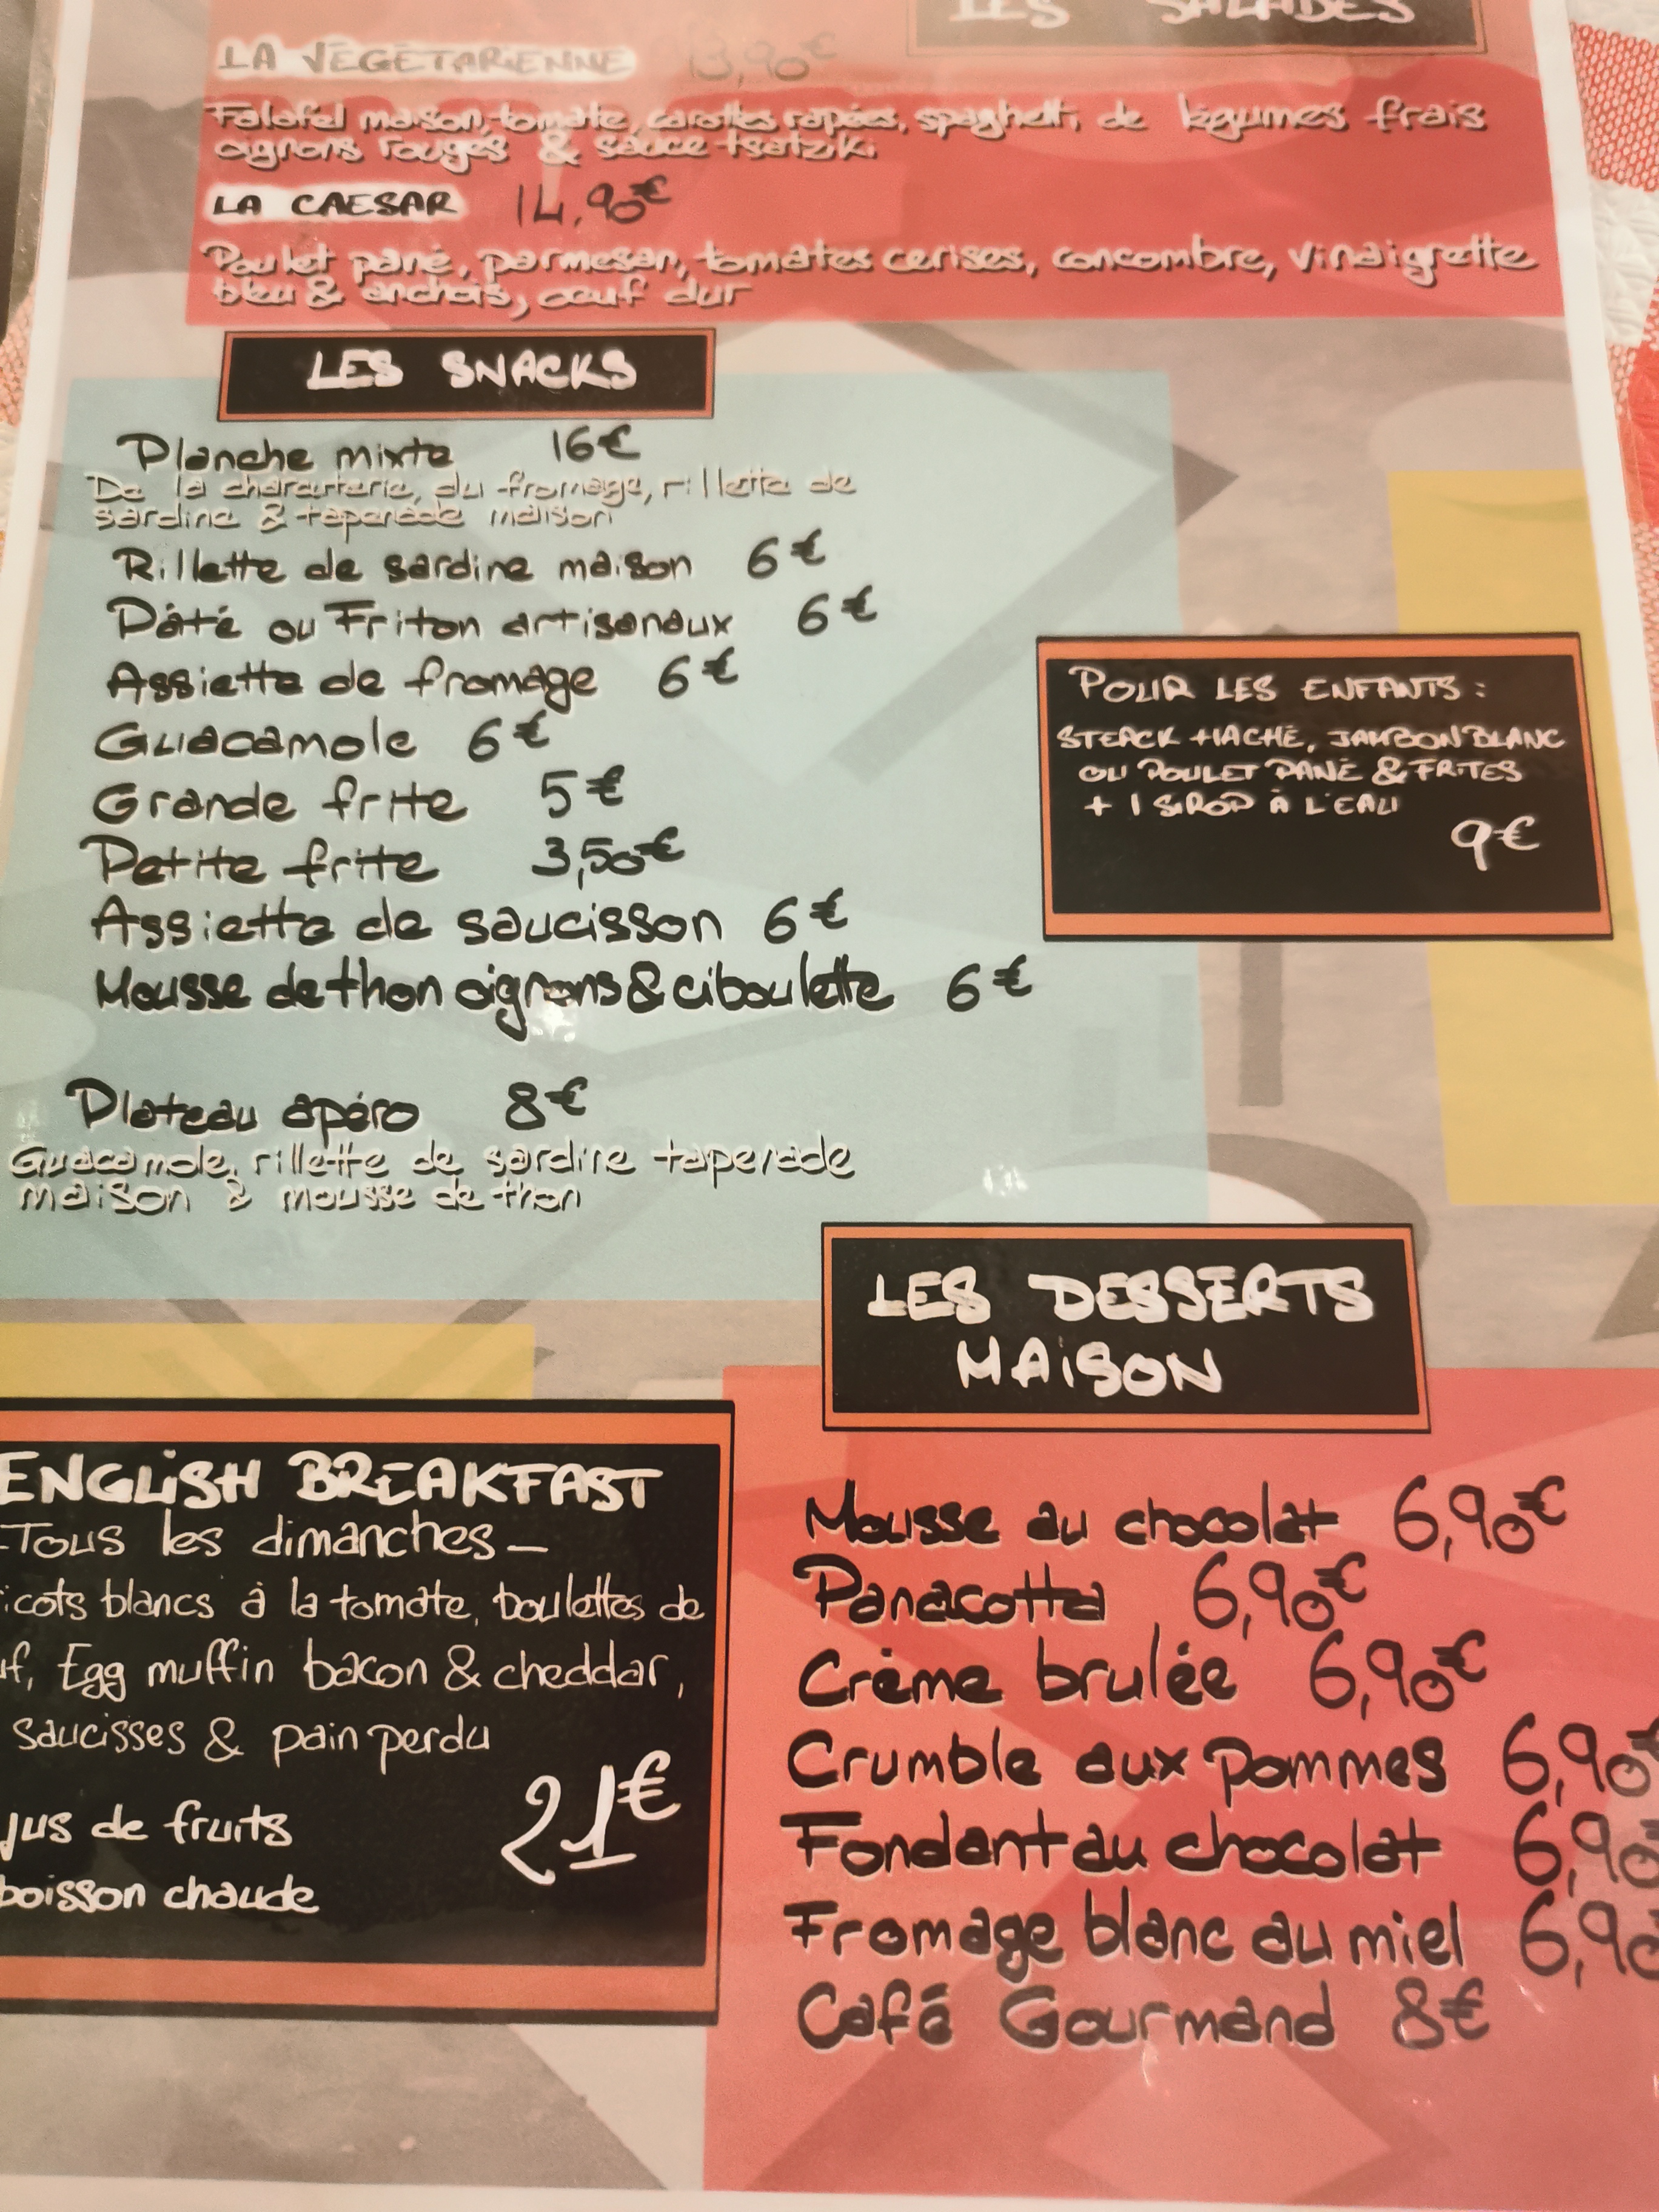 LES SALADES
LA VÉGÉTARIENNE 13,90€
Falafel maison, tomate, carottes rapées, spaghetti de légumes frais
oignons rouges & sauce tsatziki
LA CAESAR 14,90€
Poulet pané, parmesan, tomates cerises, concombre, vinaigrette
bleu & anchois, œuf dur
LES SNACKS
Planche mixte 16€
De la charcuterie, du fromage, rillette de
sardine & tapenade maison
Rillette de sardine maison 6€
Pâté ou Friton artisanaux 6€
Assiette de fromage 6€
Guacamole 6€
Grande frite 5€
Petite frite 3,50€
Assiette de saucisson 6€
Mousse de thon oignons & ciboulette 6€
Plateau apéro 8€
Guacamole, rillette de sardine tapenade
maison & mousse de thon
POUR LES ENFANTS :
STEACK HACHÉ, JAMBON BLANC
OU POULET PANÉ & FRITES
+ 1 SIROP À L'EAU
9€
LES DESSERTS
MAISON
Mousse au chocolat 6,90€
Panacotta 6,90€
Crème brulée 6,90€
Crumble aux pommes 6,90€
Fondant au chocolat 6,90
Fromage blanc au miel 6,90
Café Gourmand 8€
ENGLISH BREAKFAST
-TOUS les dimanches-
icots blancs à la tomate, boulettes de
uf, Egg muffin bacon & cheddar,
saucisses & pain perdu
21€
jus de fruits
boisson chaude